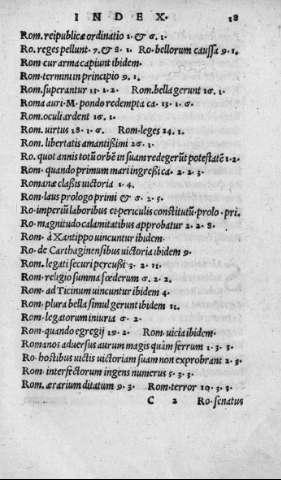 INDEX. 18
Rom. reipublicæ ordinatio 1. & σ. 1.
Ro. reges pellunt. 7. & 8. 1. Ro. bellorum caussa 9. 1.
Rom cur arma capiunt ibidem.
Rom. termini in principio 9. 1.
Rom. superantur 13. 1. 2. Rom. bella gerunt 1σ. 1.
Roma auri. M. pondo redempta ca. 13. 1. σ.
Rom. oculi ardent 1σ. 1.
Rom. uirtus 18. 1. σ. Rom. leges 24. 1.
Rom. libertatis amantissimi 2σ. 1.
Ro. quot annis totũ orbẽ in suam redegerũt potestatẽ 1. 2.
Rom. quando primum mari ingressi ca. 2. 2. 3.
Romanæ classis uictoria 1. 4.
Rom. laus prologo primi & σ. 2. 5.
Ro. imperiũ laboribus & periculis constitutũ. prolo. pri.
Ro. magnitudo calamitatibus approbatur 2. 2. 8.
Rom. à Xantippo uincuntur ibidem.
Ro. de Carthaginensibus uictoria ibidem 9.
Rom. legati securi percussi 3. 2. 11.
Rom. religio summa fœderum σ. 2. 2.
Rom. ad Ticinum uincuntur ibidem 4.
Rom. plura bella simul gerunt ibidem 11.
Rom. legatorum iniuria σ. 2.
Rom. quando egregij 19. 2. Rom. uicia ibidem.
Romanos aduersus aurum magis quàm ferrum 1. 3. 3.
Ro. hostibus uictis uictoriam suam non exprobrant 2. 3.
Rom. interfectorum ingens numerus 5. 3. 3.
Rom. ærarium ditatum 9. 3. Rom. terror 10. 3. 3.
C 2 Ro. senatus